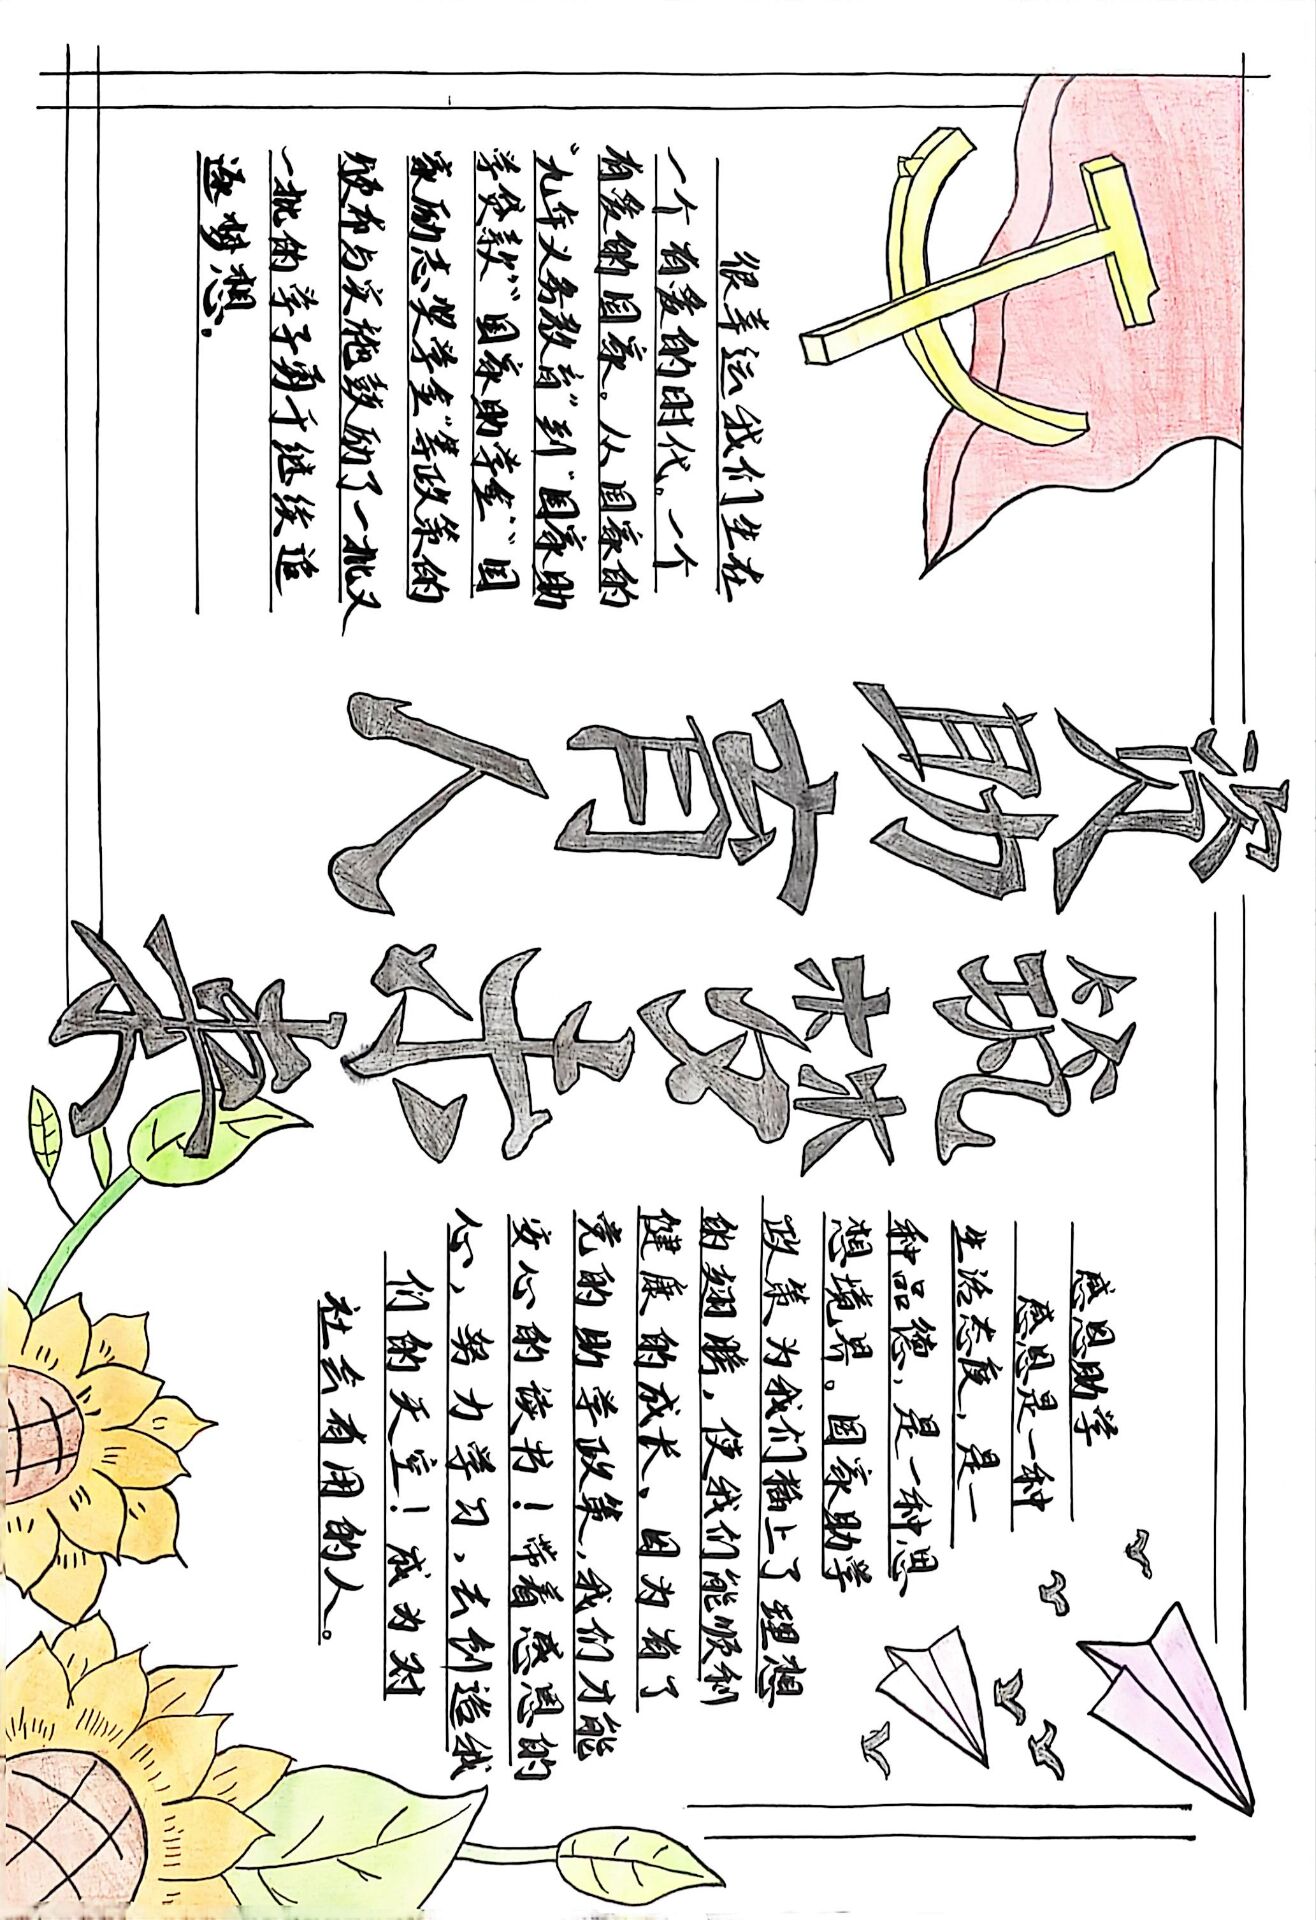 资助育人
筑梦未来
很幸运我们生在
一个有爱的时代。一个
有爱的国家。从国家的
“九年义务教育”到“国家助
学贷款”“国家助学金”“国
家励志奖学金”等政策的
颁布与实施鼓励了一批又
一批的学子勇于继续追
逐梦想.
感恩助学
感恩是一种
生活态度,是一
种品德,是一种思
想境界。国家助学
政策为我们插上了理想
的翅膀,使我们能顺利
健康的成长、因为有了
党的助学政策,我们才能
安心的读书!带着感恩的
心、努力学习、去创造我
们的天空!成为对
社会有用的人。